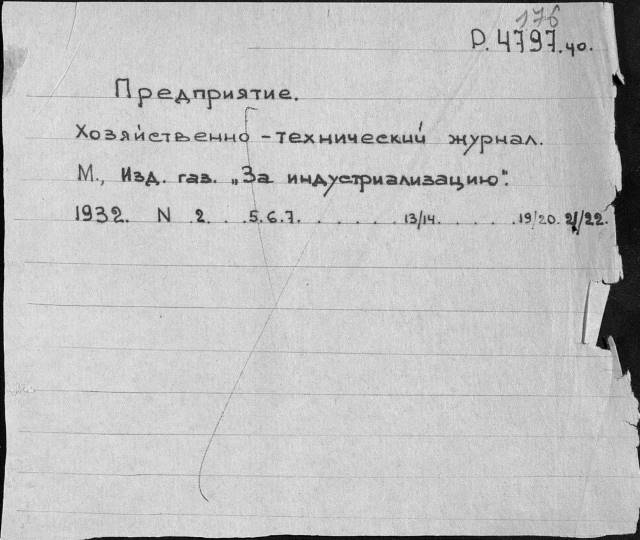 176
Р. 4797.40.
Предприятие.
Хозяйственно-технический журнал.
М., Изд. газ. „За индустриализацию".
1932. N 2. . . 5. 6. 7. . . . . . 13/14. . . . . 19/20. 21/22.